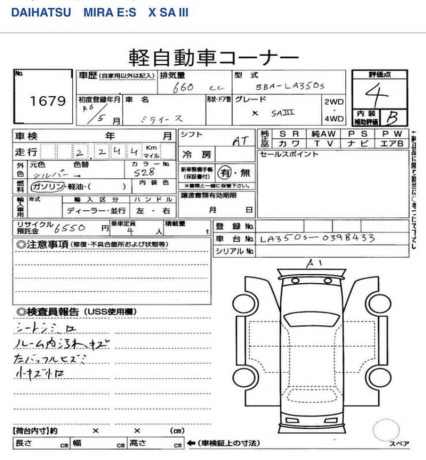 DAIHATSU MIRA E:S X SA III
軽自動車コーナー
No.
1679
車歴 (自家用以外は記入)
排気量
660 cc
型式
5BA-LA350S
評価点
4
初度登録年月
R6/5月
車名
ミライース
形状・ドア数
グレード
X SAIII
2WD
4WD
内装
補助評価
B
車検 年 月
シフト
AT
純正品
SR 純AW PS PW
カワ TV ナビ エアB
走行
2,244 Km
マイル
冷房
セールスポイント
外色
元色 色替
シルバー→
カラーNo.
S28
有・無
燃料
ガソリン・軽油・( )
内装色
輸入車用
年式
輸入区分 ハンドル
ディーラー・並行 左・右
譲渡書類有効期限
月 日
リサイクル
預託金
6550円
乗車定員
4人
積載量
t
登録No.
車台No.
LA350S-0398433
シリアルNo.
◎注意事項 (修復・不具合箇所および状態等)
A1
◎検査員報告 (USS使用欄)
シートシミ
ルーム内汚れ、キズ
小キズ
[荷台内寸] 約 × × (cm)
長さ cm 幅 cm 高さ cm ←(車検証上の寸法)
スペア